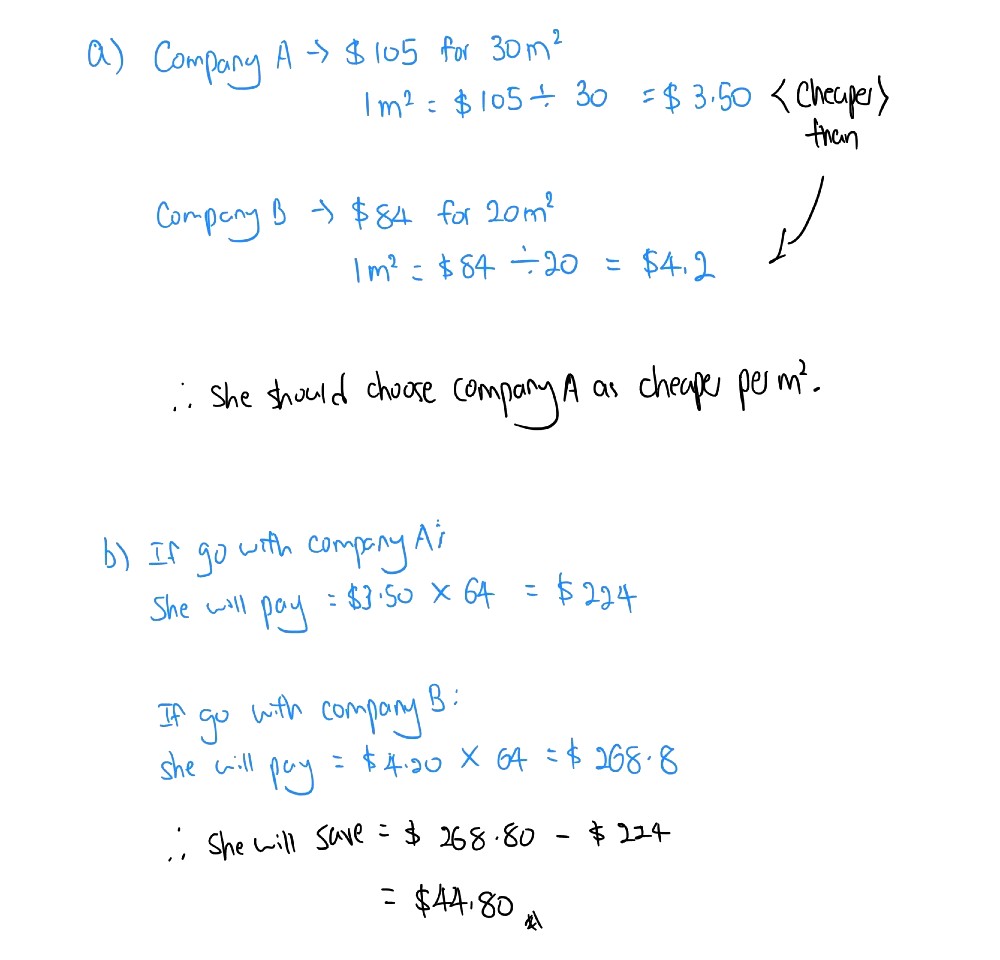 a) Company A → $105 for 30m²
1m² = $105 ÷ 30 = $3.50 <Cheaper>
than
Company B → $84 for 20m²
1m² = $84 ÷ 20 = $4.2
∴ She should choose company A as cheaper per m².
b) If go with company A:
She will pay = $3.50 × 64 = $224
If go with company B:
she will pay = $4.20 × 64 = $268.8
∴ She will save = $268.80 - $224
= $44.80